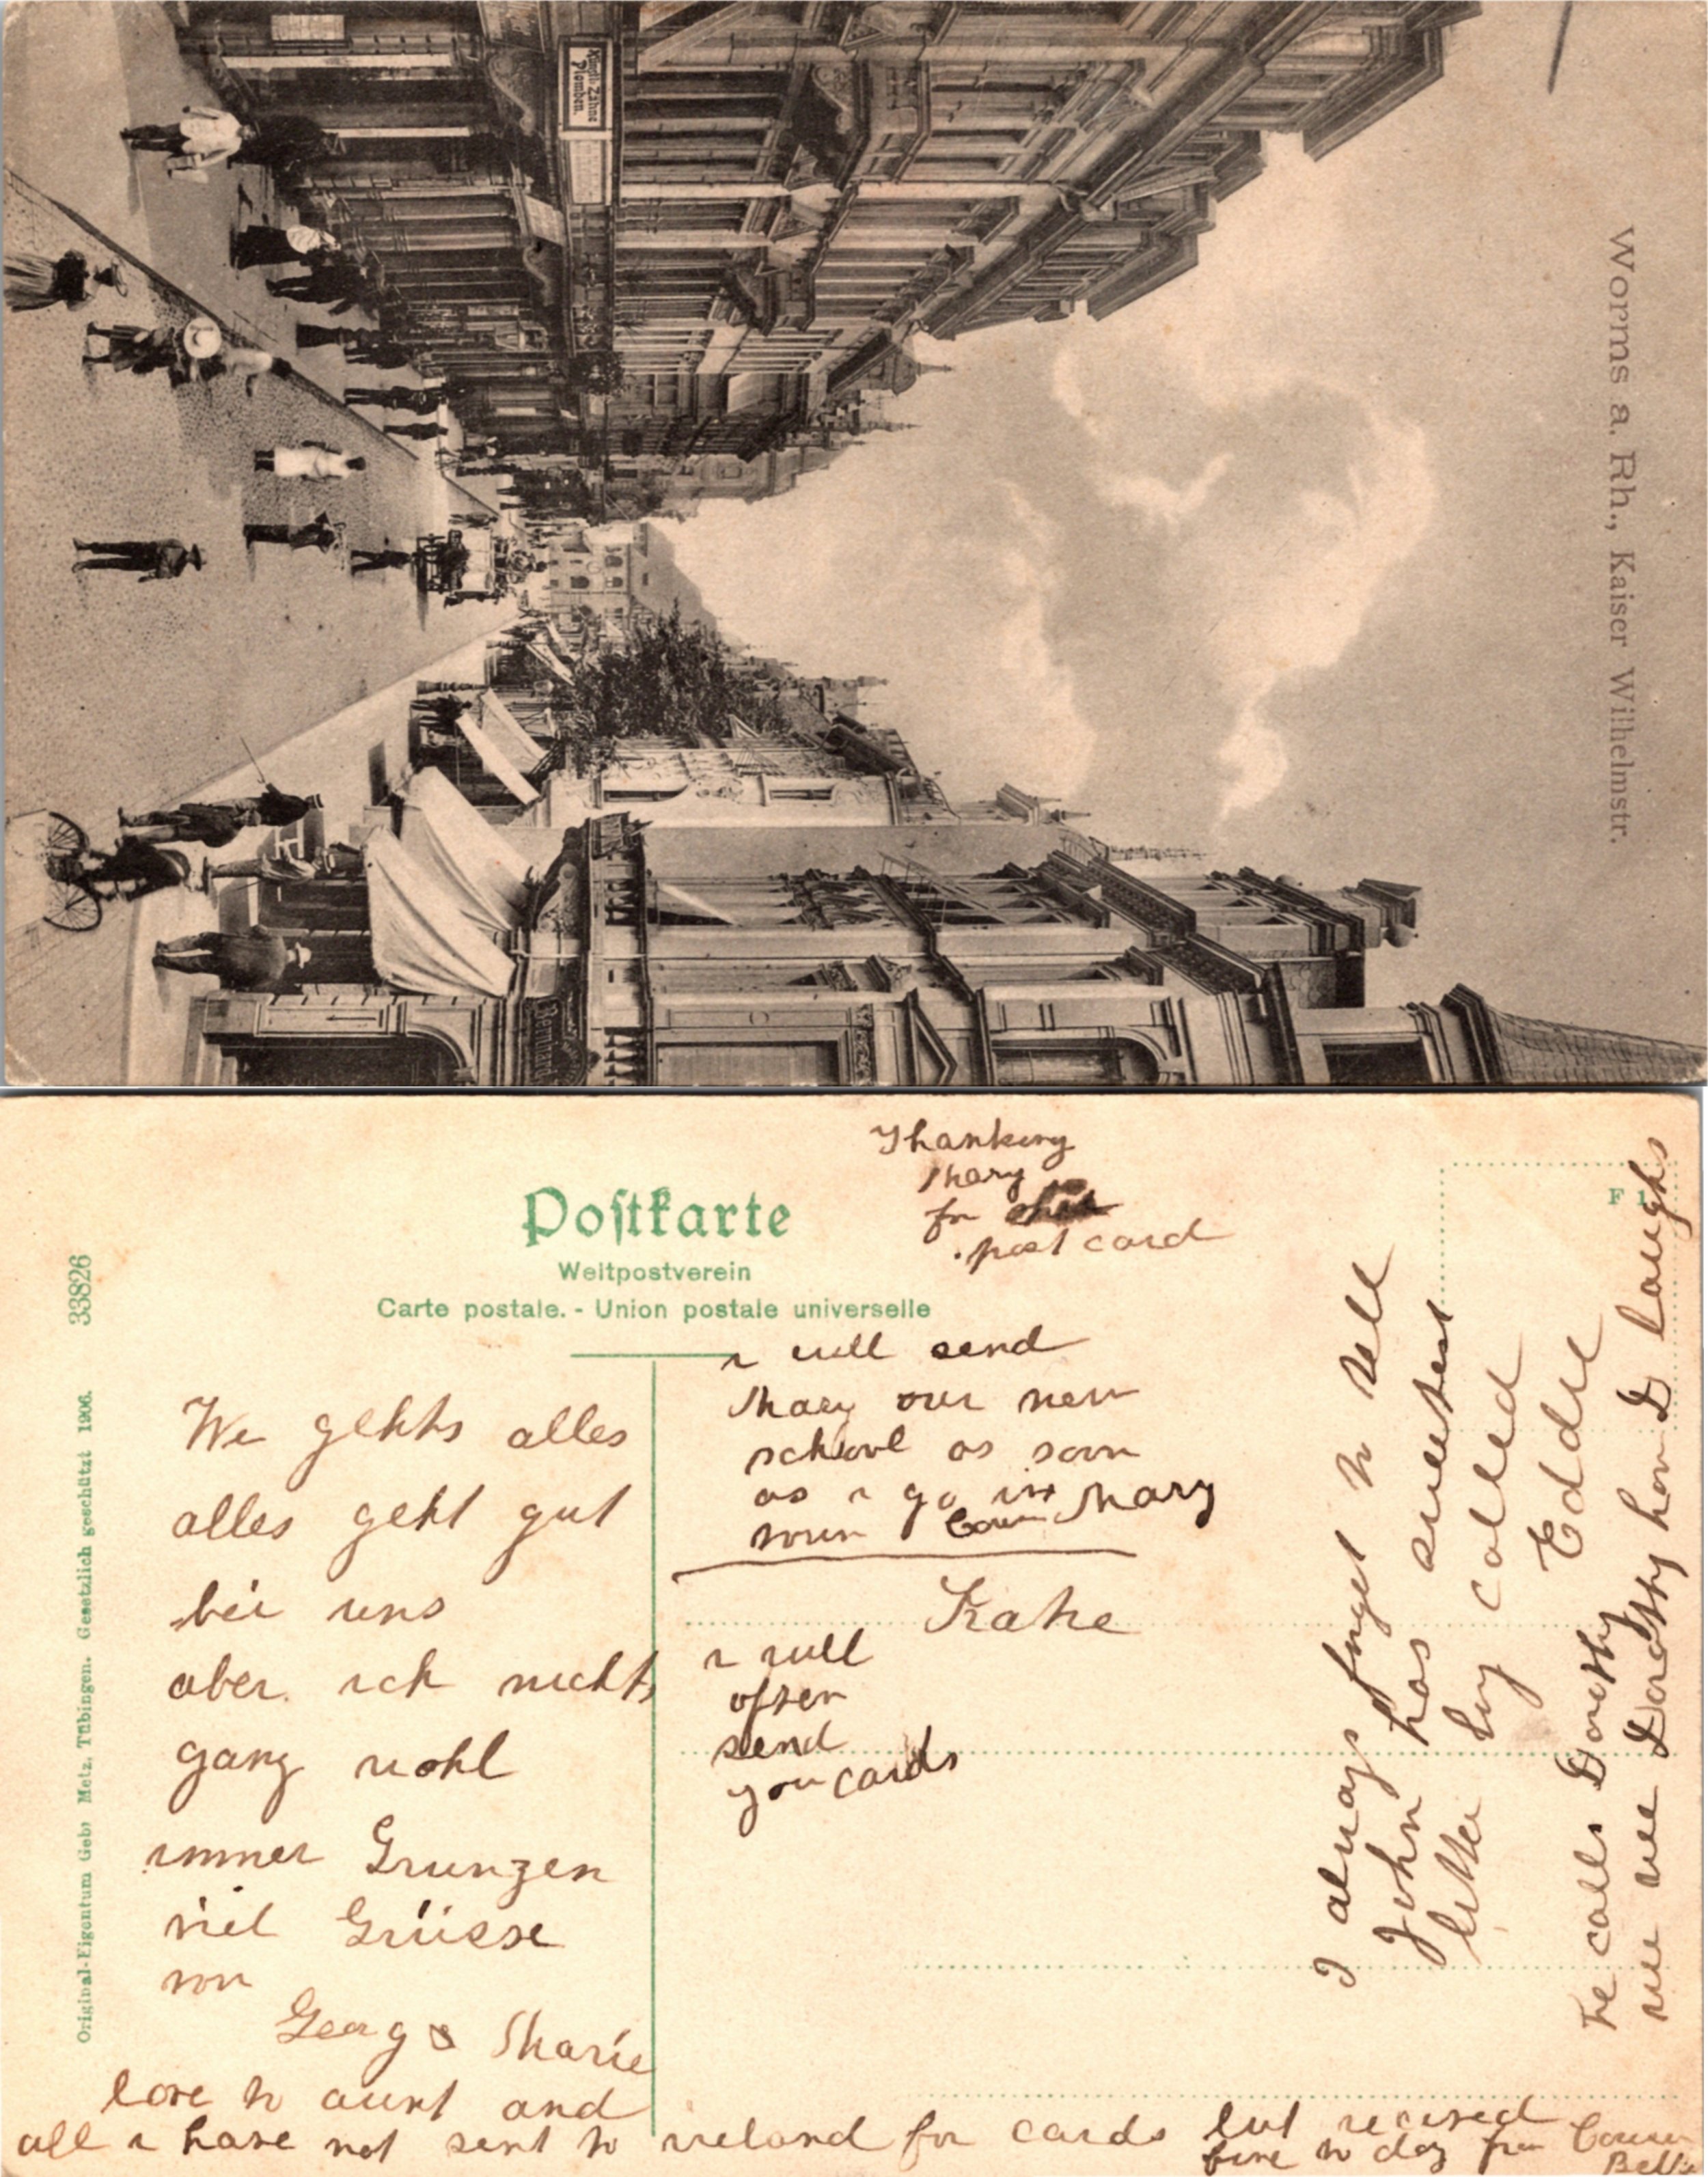 Künstl. Zähne
Plomben.
Worms a. Rh., Kaiser Wilhelmstr.
Thanking
Mary
for
post card
Postkarte
Weltpostverein
Carte postale. - Union postale universelle
F 1
33826
Original-Eigentum Gebr Metz. Tübingen. Gesetzlich geschützt 1906.
We gehts alles
alles geht gut
bei uns
aber ich nichts
ganz wohl
immer Grunzen
viel Grüsse
von
Georg & Marie
love to aunt and
all i have not sent to ireland for cards but received
five to day from Cousin
Bella
i will send
Mary our new
school as soon
as i go in
Cousin Mary
Katie
i will
often
send
you cards
I always forget to tell
John has sweetest
letter boy called
Eddie
he calls Dorothy
wee wee Dorothy how I laughs